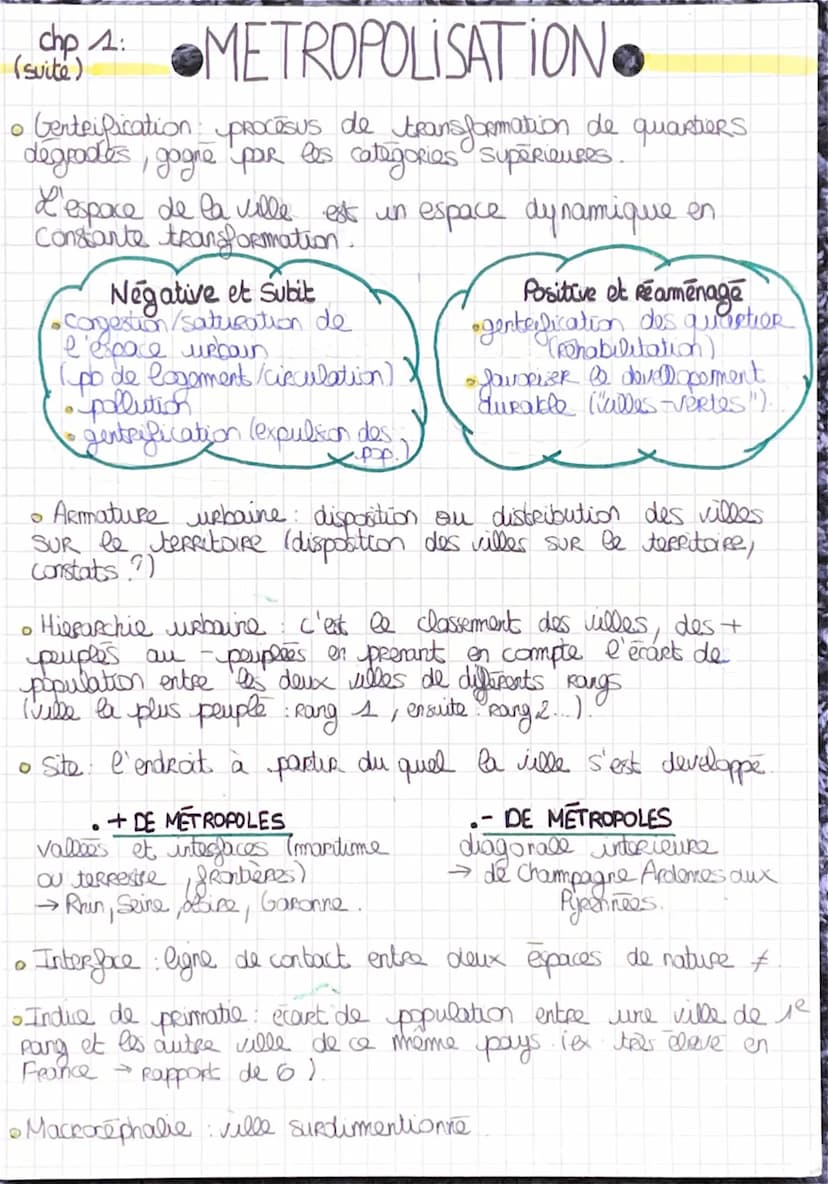 chp 1:
(suite)
METROPOLiSATiON
Gentrification: procésus de transformation de quartiers
dégradés, gagné par les catégories supérieures.
L'espace de la ville est un espace dynamique en
constante transformation.
Négative et Subit
congestion/saturation de
l'espace urbain
(pb de logement/circulation)
pollution
genterification (expulsion des
pop.)
Positive et réaménagé
genterification des quartier
(réhabilitation)
favoriser le développement
durable ("villes-vertes").
Armature urbaine: disposition ou distribution des villes
sur le territoire (disposition des villes sur le territoire,
constats?)
Hierarchie urbaine : c'est le classement des villes, des +
peuplés au - peuplées en prenant en compte l'écart de
population entre les deux villes de différents rangs
(ville la plus peuplé : rang 1, ensuite : rang 2...).
Site: l'endroit à partir du quel la ville s'est developpé.
+ DE MÉTROPOLES
Vallées et interfaces (maritime
ou terrestre, frontières)
→ Rhin, Seine, Loire, Garonne.
- DE MÉTROPOLES
diagonale intérieure
→ de Champagne Ardennes aux
Pyrénnées.
Interface : ligne de contact entre deux espaces de nature ≠
Indice de primatie: écart de population entre une ville de 1e
rang et les autre ville de ce même pays (ex très élevé en
France → rapport de 6).
Macrocéphalie : ville surdimentionné